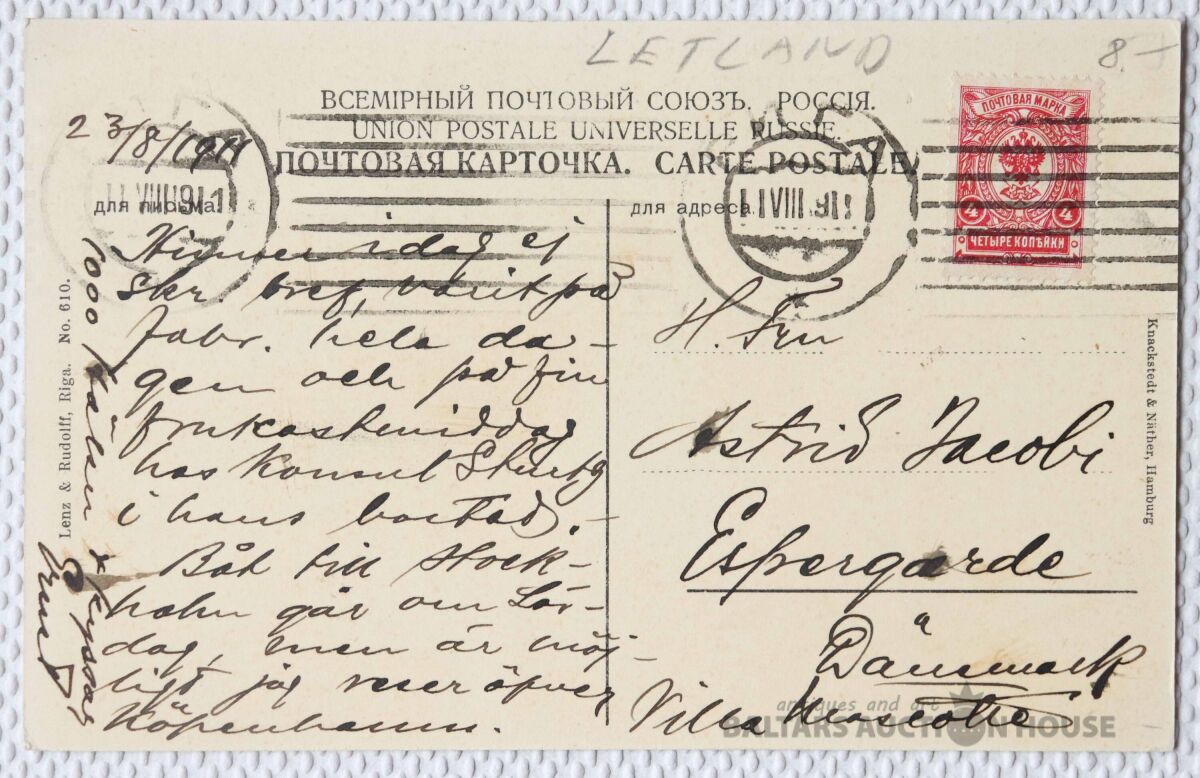 LETLAND
8.-
ВСЕМІРНЫЙ ПОЧТОВЫЙ СОЮЗЪ. РОССІЯ.
UNION POSTALE UNIVERSELLE RUSSIE.
ПОЧТОВАЯ КАРТОЧКА. CARTE POSTALE.
23/8/1911
11 VIII 1911
11 VIII 1911
для письма.
для адреса.
ПОЧТОВАЯ МАРКА
4 4
ЧЕТЫРЕ КОПѢЙКИ
Hinner idag ej
skr. bref, varit på
fabr. hela da-
gen och på fin
frukostmiddag
hos Konsul
i hans bostad.-
Båt till Stock-
holm går om Lör-
dag, men är möj-
ligt jag reser öfver
Köpenhamn.
1000 hälsn & kyssar
H. Fru
Astrid Jacobi
Espergærde
Dänemark
Villa Mascotte
Lenz & Rudolff, Riga. No. 610.
Knackstedt & Näther, Hamburg
antiques and art
BALTARS AUCTION HOUSE